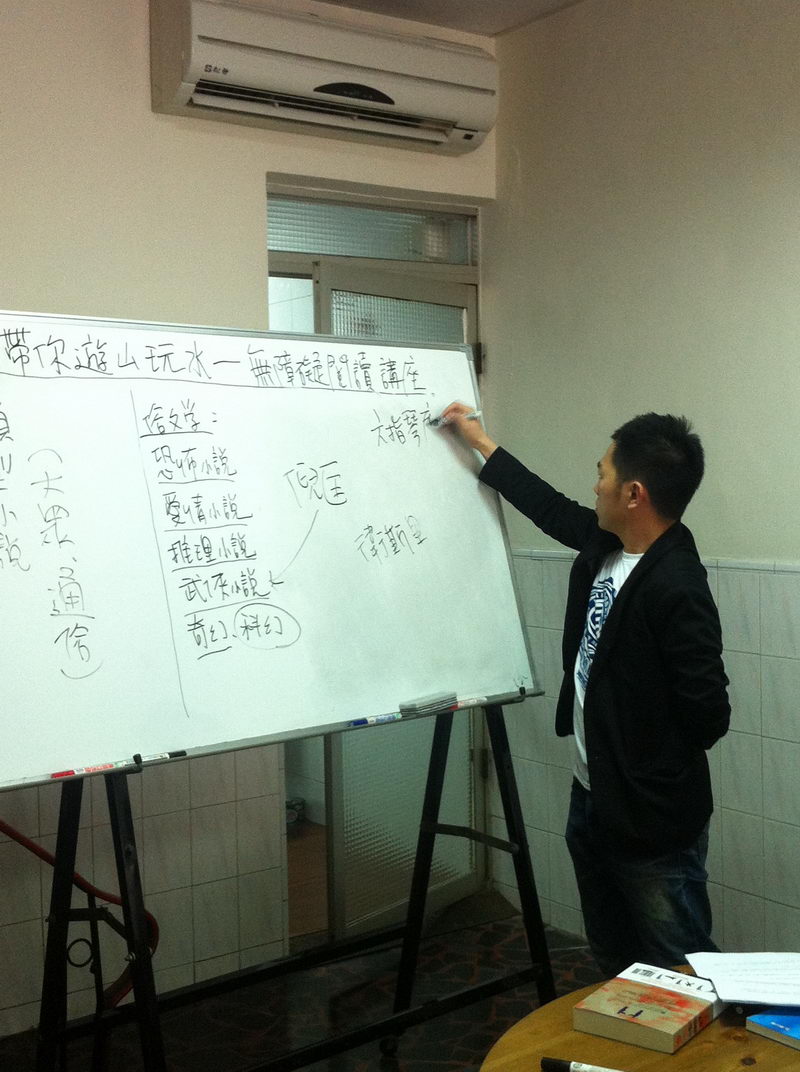 帶你遊山玩水—無障礙閱讀講座
型小說
(大眾、通俗)
俗文学:
恐怖小說
愛情小說
推理小說
武俠小說
奇幻、科幻
倪匡
六指琴
衛斯里